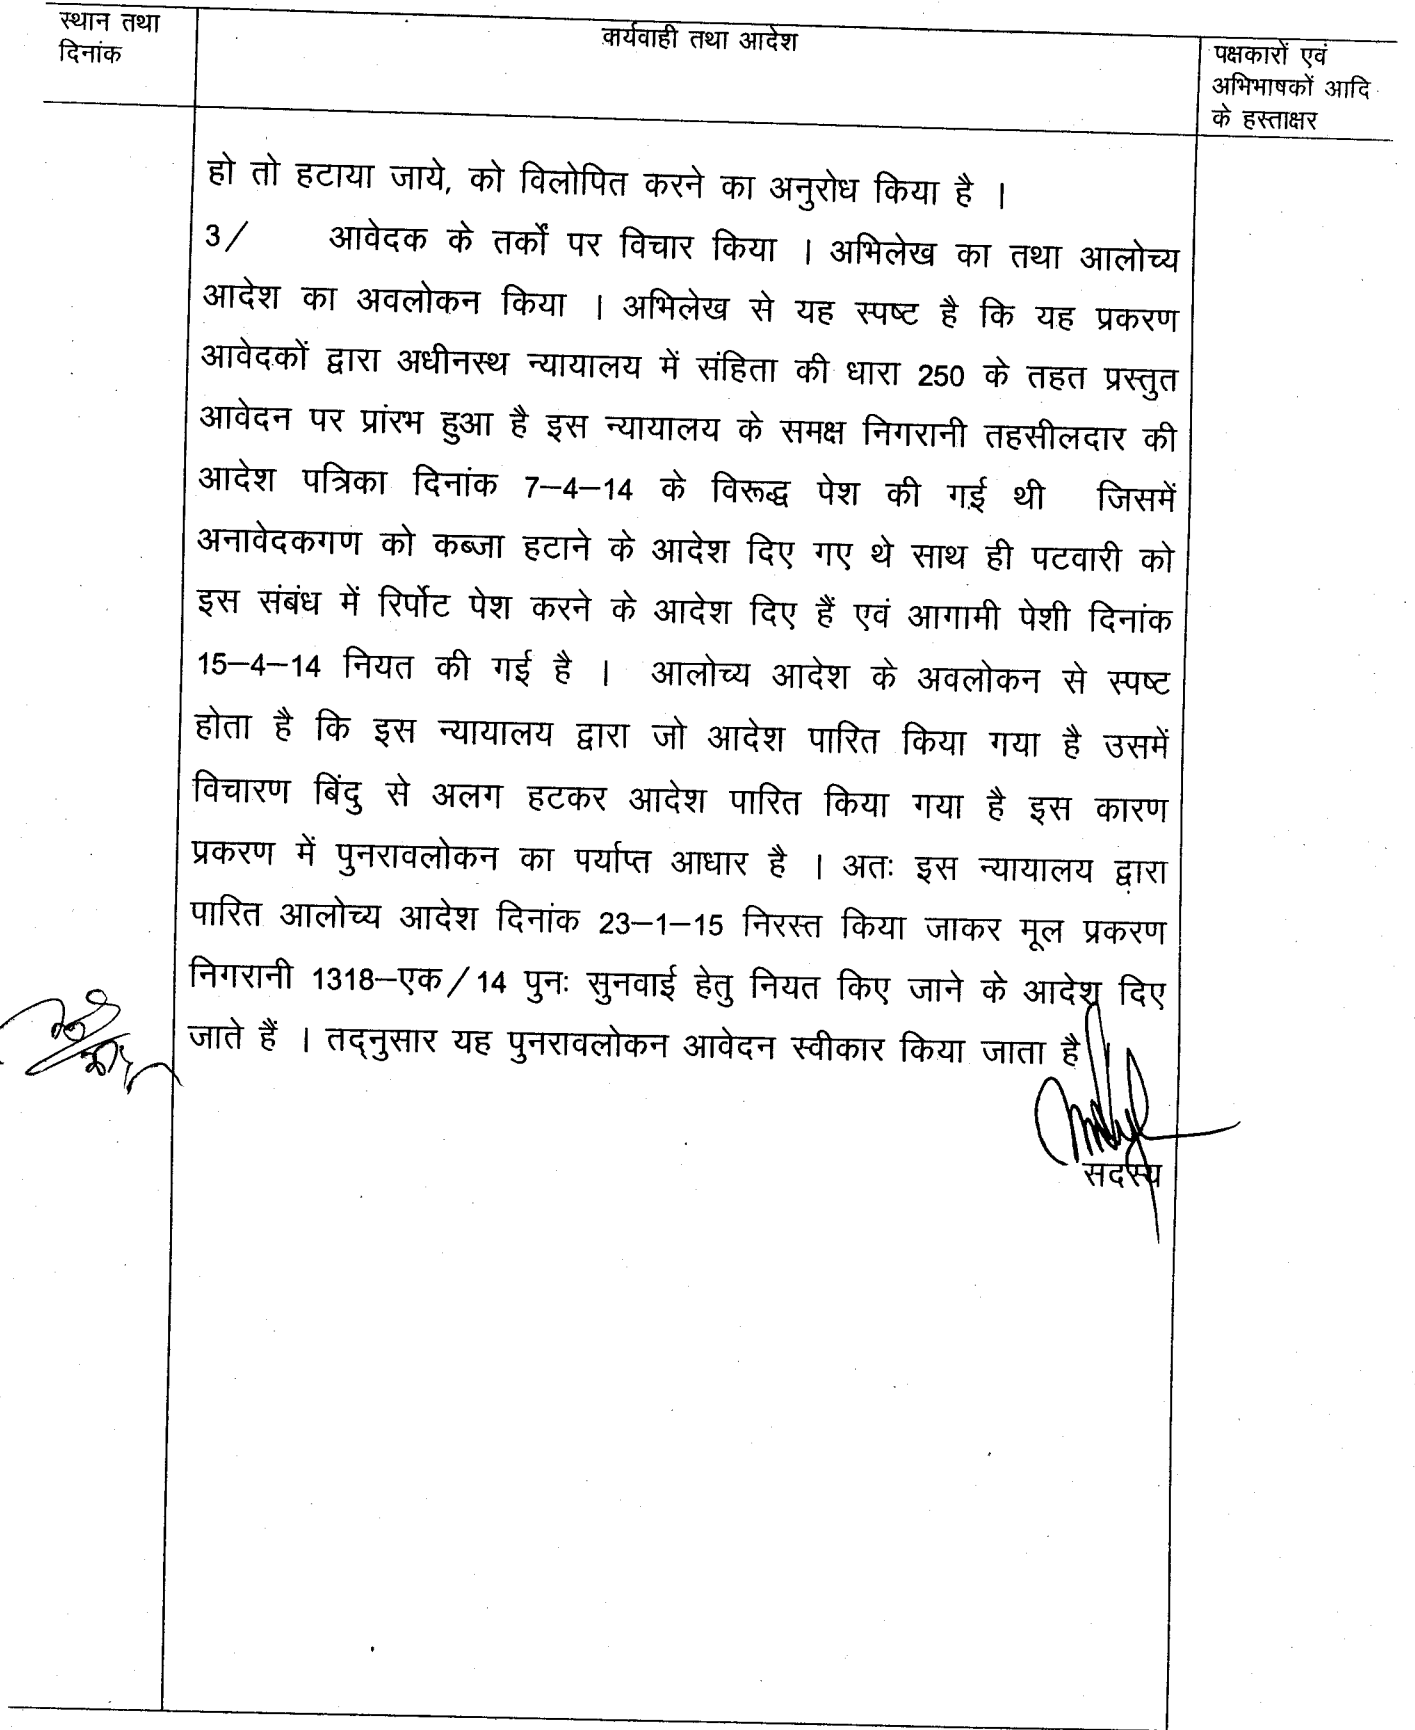 स्थान तथा
दिनांक
कार्यवाही तथा आदेश
पक्षकारों एवं
अभिभाषकों आदि
के हस्ताक्षर
हो तो हटाया जाये, को विलोपित करने का अनुरोध किया है ।
3/ आवेदक के तर्कों पर विचार किया । अभिलेख का तथा आलोच्य
आदेश का अवलोकन किया । अभिलेख से यह स्पष्ट है कि यह प्रकरण
आवेदकों द्वारा अधीनस्थ न्यायालय में संहिता की धारा 250 के तहत प्रस्तुत
आवेदन पर प्रांरभ हुआ है इस न्यायालय के समक्ष निगरानी तहसीलदार की
आदेश पत्रिका दिनांक 7–4–14 के विरूद्ध पेश की गई थी जिसमें
अनावेदकगण को कब्जा हटाने के आदेश दिए गए थे साथ ही पटवारी को
इस संबंध में रिर्पोट पेश करने के आदेश दिए हैं एवं आगामी पेशी दिनांक
15–4–14 नियत की गई है । आलोच्य आदेश के अवलोकन से स्पष्ट
होता है कि इस न्यायालय द्वारा जो आदेश पारित किया गया है उसमें
विचारण बिंदु से अलग हटकर आदेश पारित किया गया है इस कारण
प्रकरण में पुनरावलोकन का पर्याप्त आधार है । अतः इस न्यायालय द्वारा
पारित आलोच्य आदेश दिनांक 23–1–15 निरस्त किया जाकर मूल प्रकरण
निगरानी 1318–एक/14 पुनः सुनवाई हेतु नियत किए जाने के आदेश दिए
जाते हैं । तद्नुसार यह पुनरावलोकन आवेदन स्वीकार किया जाता है
सदस्य